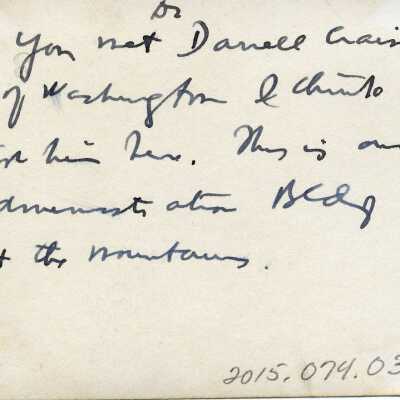 Dr
You met Darrell Crain
of Washington I think
him here. This is our
Administration Bldg
the mountains.
2015.074.03